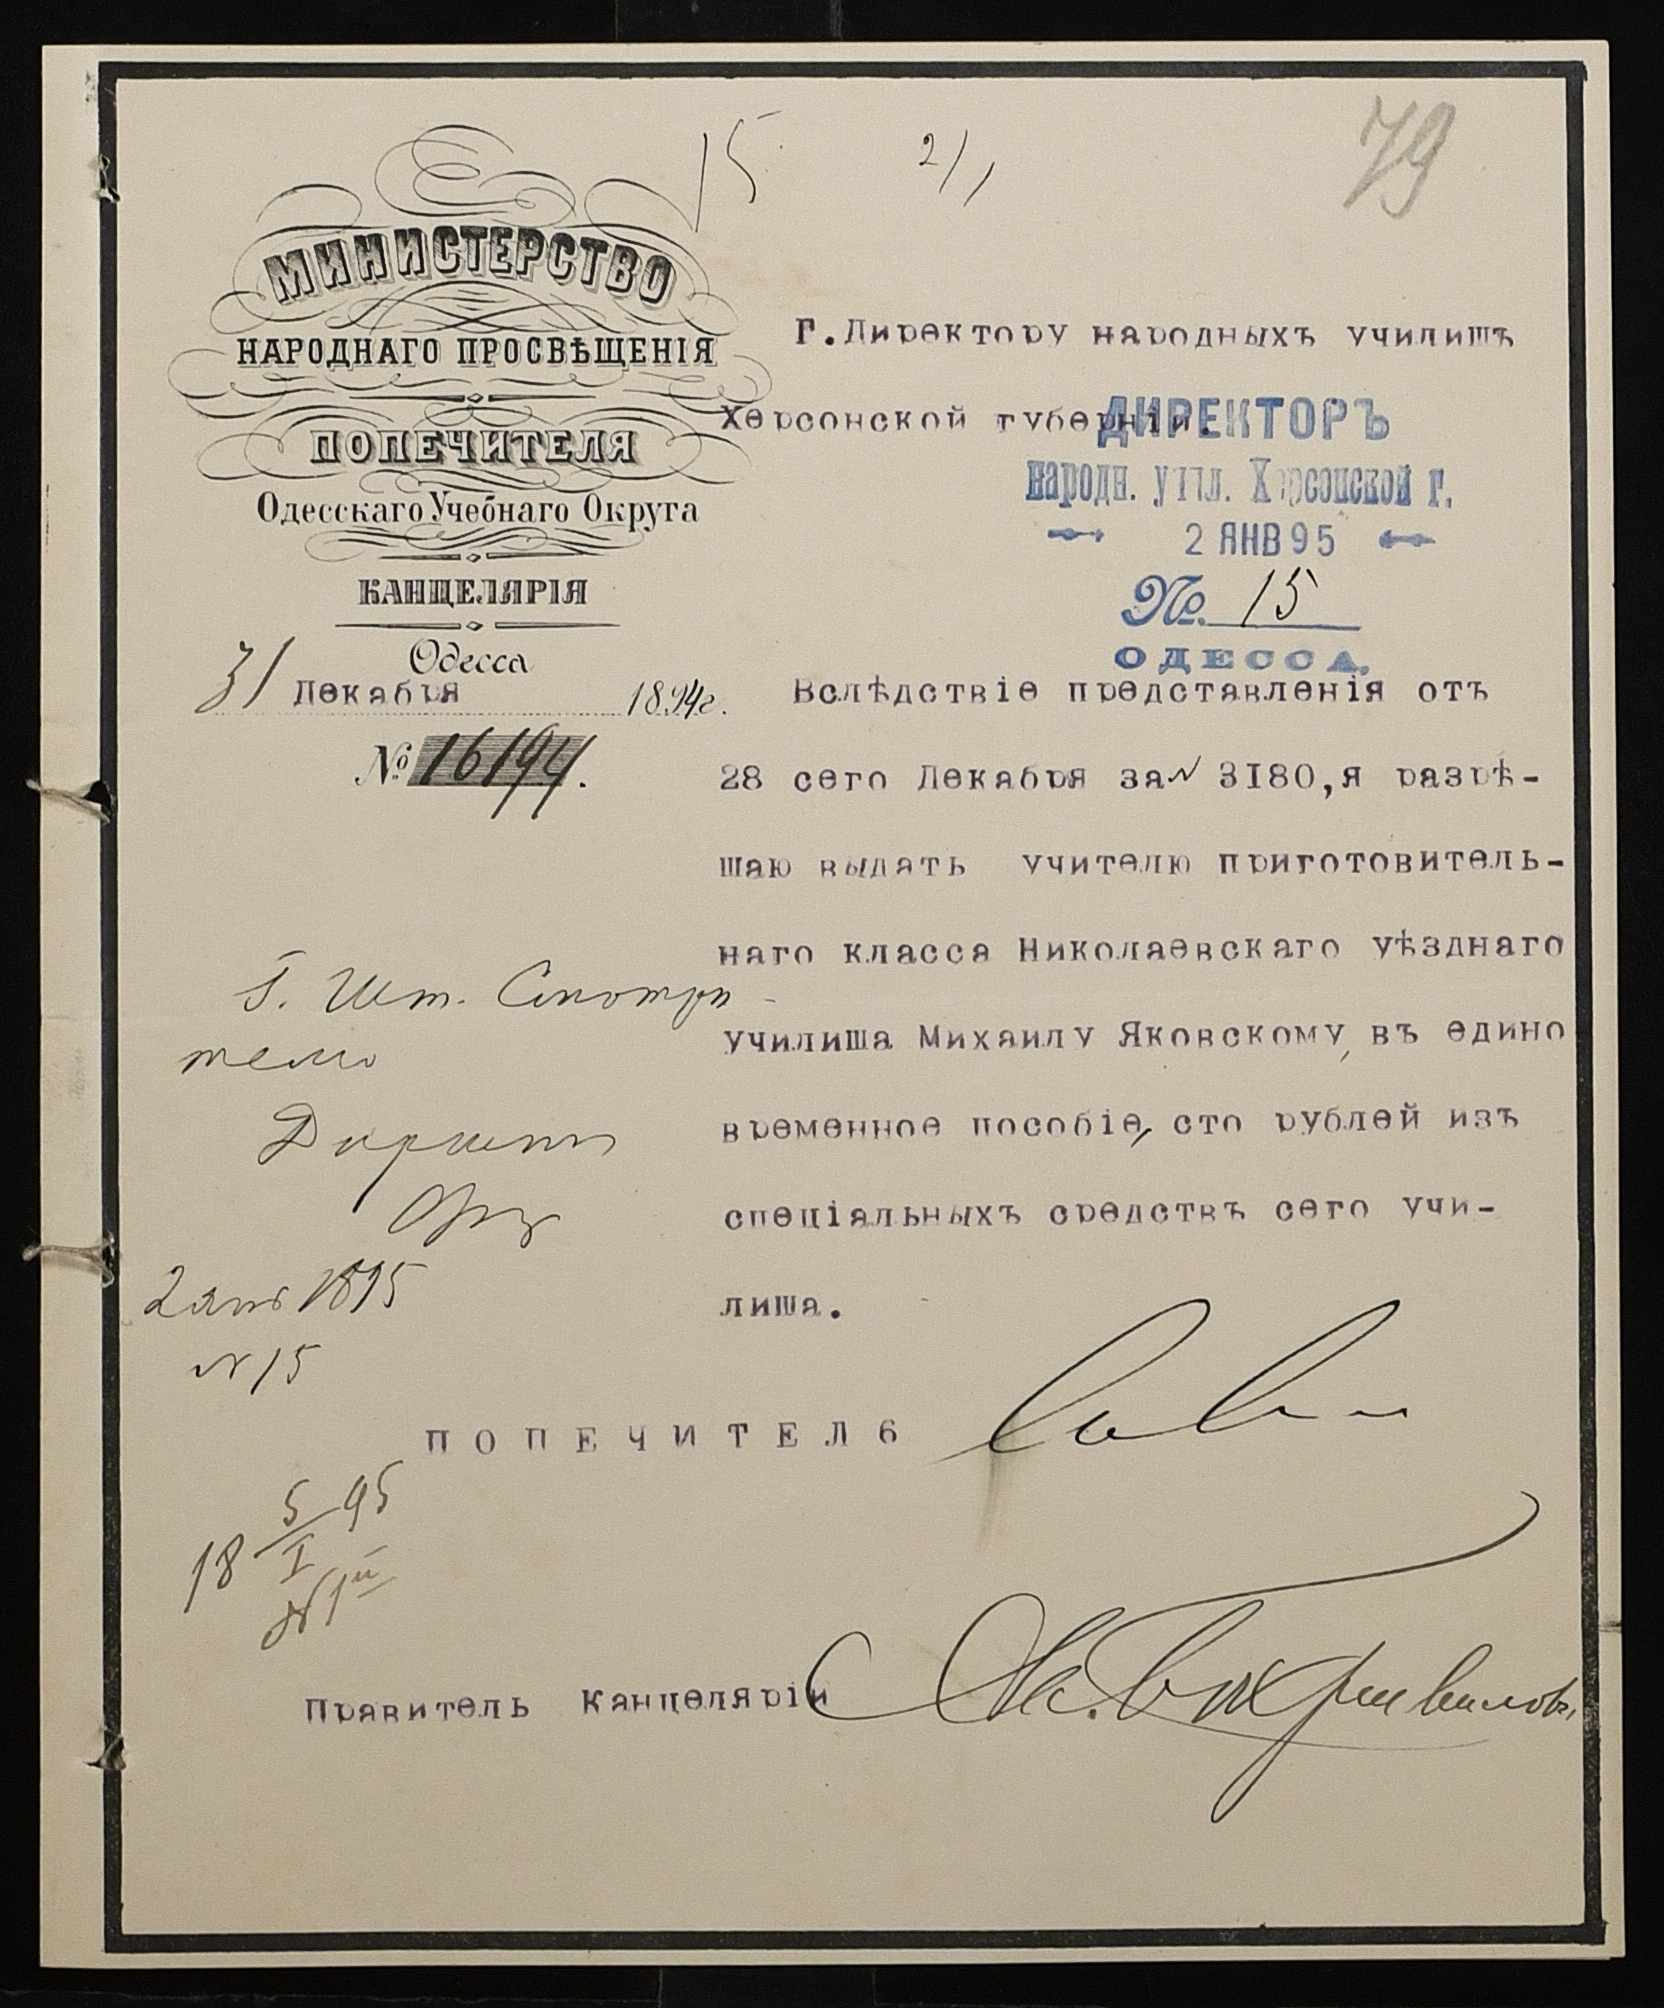 15
2/1
79
МИНИСТЕРСТВО
НАРОДНАГО ПРОСВѢЩЕНІЯ
ПОПЕЧИТЕЛЯ
Одесскаго Учебнаго Округа
КАНЦЕЛЯРІЯ
Одесса
31 Декабря 1894г.
№ 16194.
Г.Директору народныхъ училишъ
Херсонской губерніи.
ДИРЕКТОРЪ
народн. учил. Херсонской г.
2 ЯНВ 95
№. 15
ОДЕССА.
Вслѣдствіе представленія отъ
28 сего Декабря за N 3I80,я разрѣ-
шаю выдать учителю приготовитель-
наго класса Николаевскаго уѣзднаго
училиша Михаилу Яковскому, въ едино
временное пособіе, сто рублей изъ
спеціальныхъ средствъ сего учи-
лиша.
Г. Шт. Смотри-
телю
2 янв 1895
N 15
ПОПЕЧИТЕЛ6
18 5/I 95
N 1й
Правитель Канцеляріи